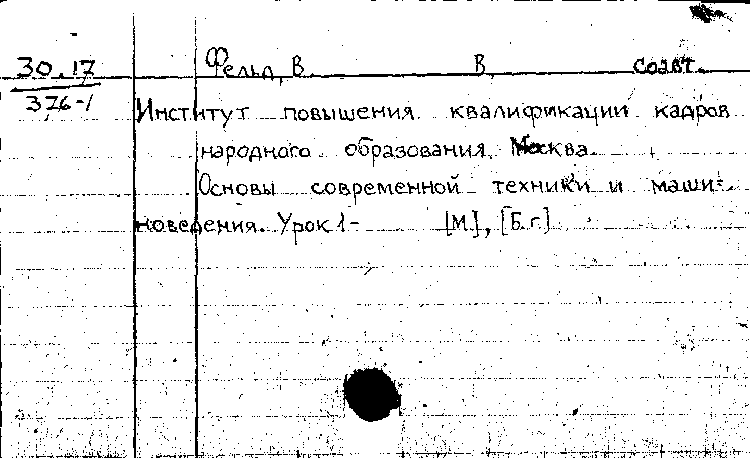 30.17 Фельд, В. В. соавт.
376-1
Институт повышения квалификации кадров
народного образования, Москва.
Основы современной техники и маши-
новедения. Урок 1- [М.], [Б.г.]